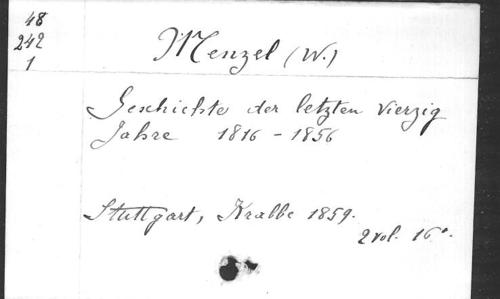 48
242
1
Menzel (W.)
Geschichte der letzten vierzig
Jahre 1816 - 1856
Stuttgart, Krabbe 1859.
2 vol. 16°.